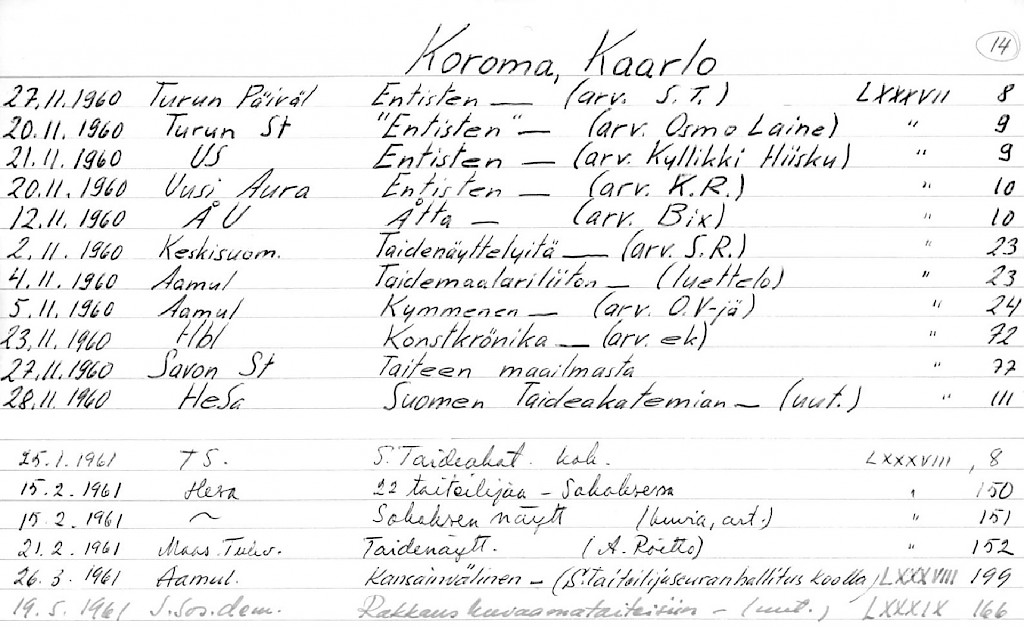 14
Koroma, Kaarlo
27.11.1960 Turun Päiväl Entisten — (arv. S.T.) LXXXVII 8
20.11.1960 Turun St "Entisten" — (arv. Osmo Laine) " 9
21.11.1960 US Entisten — (arv. Kyllikki Hiisku) " 9
20.11.1960 Uusi Aura Entisten — (arv. K.R.) " 10
12.11.1960 ÅU Åtta — (arv. Bix) " 10
2.11.1960 Keskisuom. Taidenäyttelyitä — (arv. S.R.) " 23
4.11.1960 Aamul Taidemaalariliiton — (luettelo) " 23
5.11.1960 Aamul Kymmenen — (arv. O.V-jä) " 24
23.11.1960 Hbl Konstkrönika — (arv. ek) " 72
27.11.1960 Savon St Taiteen maailmasta " 77
28.11.1960 HeSa Suomen Taideakatemian — (uut.) " 111
25.1.1961 TS. S. Taideakat. kok. LXXXVIII, 8
15.2.1961 Hesa 22 taiteilijaa — Sokoksessa " 150
15.2.1961 ~ Sokoksen näytt (kuvia, art.) " 151
21.2.1961 Maas. Tulev. Taidenäytt. (A. Röetto) " 152
26.3.1961 Aamul. Kansainvälinen — (S. taiteilijaseuran hallitus koolla) LXXXVIII 199
19.5.1961 S. Sos.dem. Rakkaus kuvaamataiteisiin — (uut.) LXXXIX 166